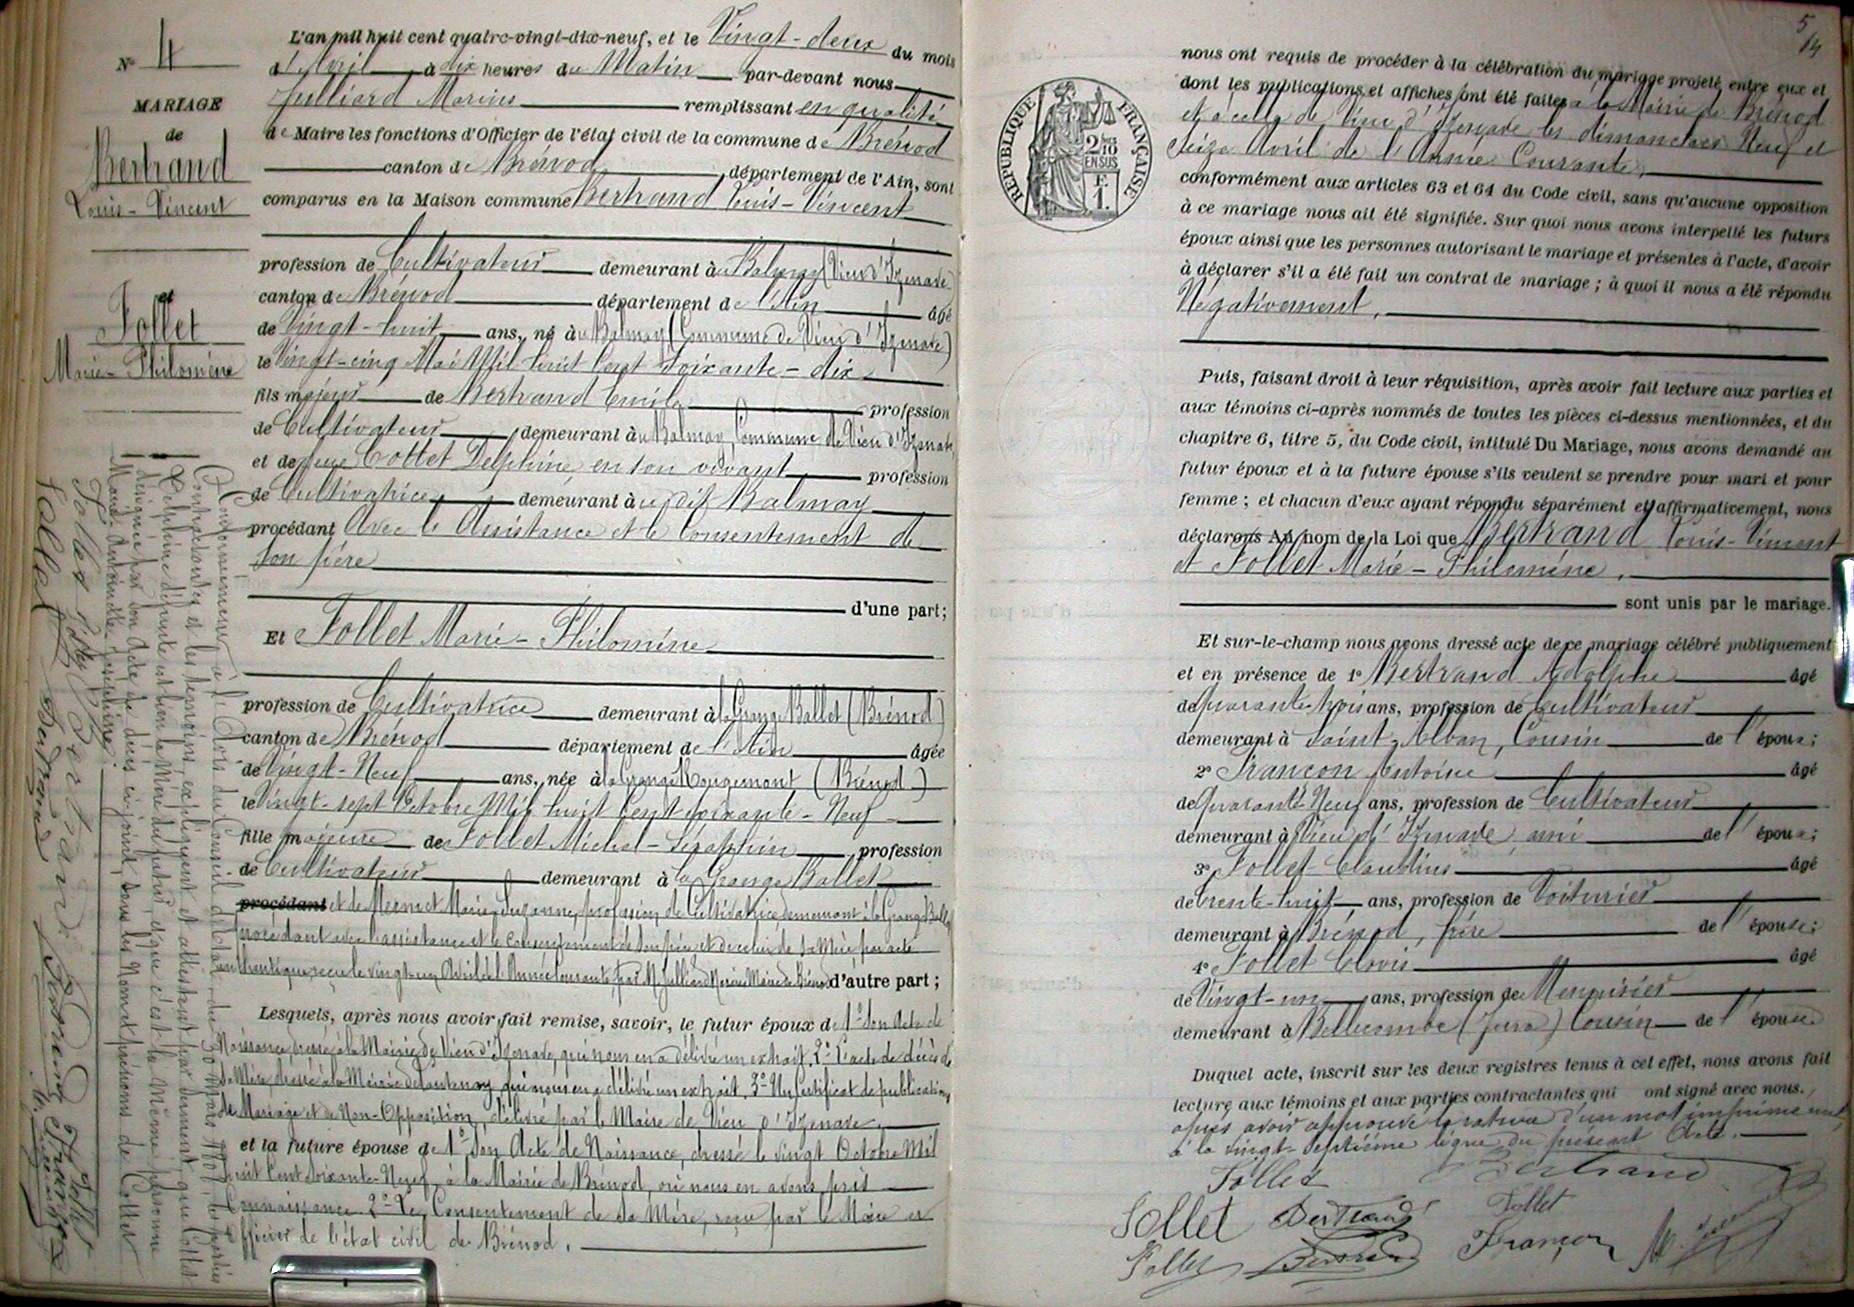 N° 4
MARIAGE
de
Bertrand
Louis-Vincent
et
Follet
Marie-Philomène
L'an mil huit cent quatre-vingt-dix-neuf, et le Vingt-deux du mois
d'Avril à dix heures du Matin par-devant nous
Julliard Marius remplissant en qualité
de Maire les fonctions d'Officier de l'état civil de la commune de Brénod
canton de Brénod, département de l'Ain, sont
comparus en la Maison commune Bertrand Louis-Vincent
profession de Cultivateur demeurant à Balmay (Vieu d'Izenave)
canton de Brénod département de l'Ain âgé
de Vingt-huit ans, né à Balmay (Commune de Vieu d'Izenave)
le Vingt-cinq Mai Mil huit Cent Soixante-dix
fils majeur de Bertrand Emile profession
de Cultivateur demeurant à Balmay Commune de Vieu d'Izenave,
et de feue Collet Delphine en son vivant profession
de Cultivatrice demeurant à udit Balmay
procédant Avec le Assistance et le Consentement de
son père
d'une part;
Et Follet Marie-Philomène
profession de Cultivatrice demeurant à la Grange Ballet (Brénod)
canton de Brénod département de l'Ain âgée
de Vingt-Neuf ans, née à la Grange Rougemont (Brénod)
le Vingt-sept Octobre Mil huit Cent soixante-Neuf
fille majeure de Follet Michel-Séraphin profession
de Cultivateur demeurant à la Grange Ballet
procédant et de Mermet Marie-Suzanne, profession de Cultivatrice demeurant à la Grange Ballet
procédant avec l'assistance et le consentement de son père et de celui de sa Mère par acte
authentique reçu le vingt-un Avril de l'Année Courante, par M. Julliard Marius Maire de Brénod d'autre part;
Lesquels, après nous avoir fait remise, savoir, le futur époux de 1° Son Acte de
Naissance, dressé à la Mairie de Vieu d'Izenave, qui nous en a délivré un extrait. 2° L'acte de décès de
Sa Mère, dressé à la Mairie de Lantenay qui nous en a délivré un extrait, 3° Un Certificat de publication
de Mariage et de Non-Opposition, délivré par le Maire de Vieu d'Izenave.
et la future épouse de 1° Son Acte de Naissance, dressé le vingt Octobre Mil
huit Cent Soixante-Neuf, à la Mairie de Brénod, où nous en avons pris
Connaissance 2° Le Consentement de sa Mère, reçu par le Maire et
Officier de l'état civil de Brénod.
Conformément à l'Avis du Conseil d'état du 30 Mars 1808, les parties
Contractantes et les témoins expliquent et attestent par serment, que Collet
Delphine défunte est bien la Mère du futur, et que c'est la Même personne
désignée par son Acte de décès ci-joint, sous les Nom et prénoms de Collet
Marie Antoinette Joséphine.
Follet Follet Bertrand Bertrand Follet
Follet Bertrand Françon
5
14
RÉPUBLIQUE FRANÇAISE
2/10
EN SUS
F.
1.
nous ont requis de procéder à la célébration du mariage projeté entre eux et
dont les publications et affiches ont été faites à la Mairie de Brénod
et à celle de Vieu d'Izenave les dimanches Neuf et
Seize Avril de l'Année Courante,
conformément aux articles 63 et 64 du Code civil, sans qu'aucune opposition
à ce mariage nous ait été signifiée. Sur quoi nous avons interpellé les futurs
époux ainsi que les personnes autorisant le mariage et présentes à l'acte, d'avoir
à déclarer s'il a été fait un contrat de mariage; à quoi il nous a été répondu
Négativement,
Puis, faisant droit à leur réquisition, après avoir fait lecture aux parties et
aux témoins ci-après nommés de toutes les pièces ci-dessus mentionnées, et du
chapitre 6, titre 5, du Code civil, intitulé Du Mariage, nous avons demandé au
futur époux et à la future épouse s'ils veulent se prendre pour mari et pour
femme; et chacun d'eux ayant répondu séparément et affirmativement, nous
déclarons Au nom de la Loi que Bertrand Louis-Vincent
et Follet Marie-Philomène,
sont unis par le mariage.
Et sur-le-champ nous avons dressé acte de ce mariage célébré publiquement
et en présence de 1° Bertrand Adolphe âgé
de quarante-trois ans, profession de Cultivateur
demeurant à Saint-Alban, Cousin de l'époux;
2° Françon Antoine âgé
de Quarante-Neuf ans, profession de Cultivateur
demeurant à Vieu d'Izenave, ami de l'époux;
3° Follet Claudius âgé
de trente-huit ans, profession de Voiturier
demeurant à Brénod, frère de l'épouse;
4° Follet Clovis âgé
de Vingt-un ans, profession de Menuisier
demeurant à Bellecombe (Jura) Cousin de l'épouse
Duquel acte, inscrit sur les deux registres tenus à cet effet, nous avons fait
lecture aux témoins et aux parties contractantes qui ont signé avec nous.,
après avoir approuvé la rature d'un mot imprimé nul,
à la vingt-septième ligne du présent Acte.
Follet Bertrand
Follet Bertrand Follet
Follet Bertrand Françon